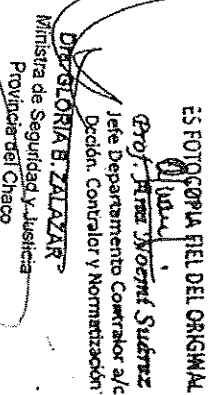 ES FOTOCOPIA FIEL DEL ORIGINAL
Prof. Ana Noemí Suárez
Jefe Departamento Contralor a/c
Dcción. Contralor y Normatización
Dra. GLORIA B. ZALAZAR
Ministra de Seguridad y Justicia
Provincia del Chaco